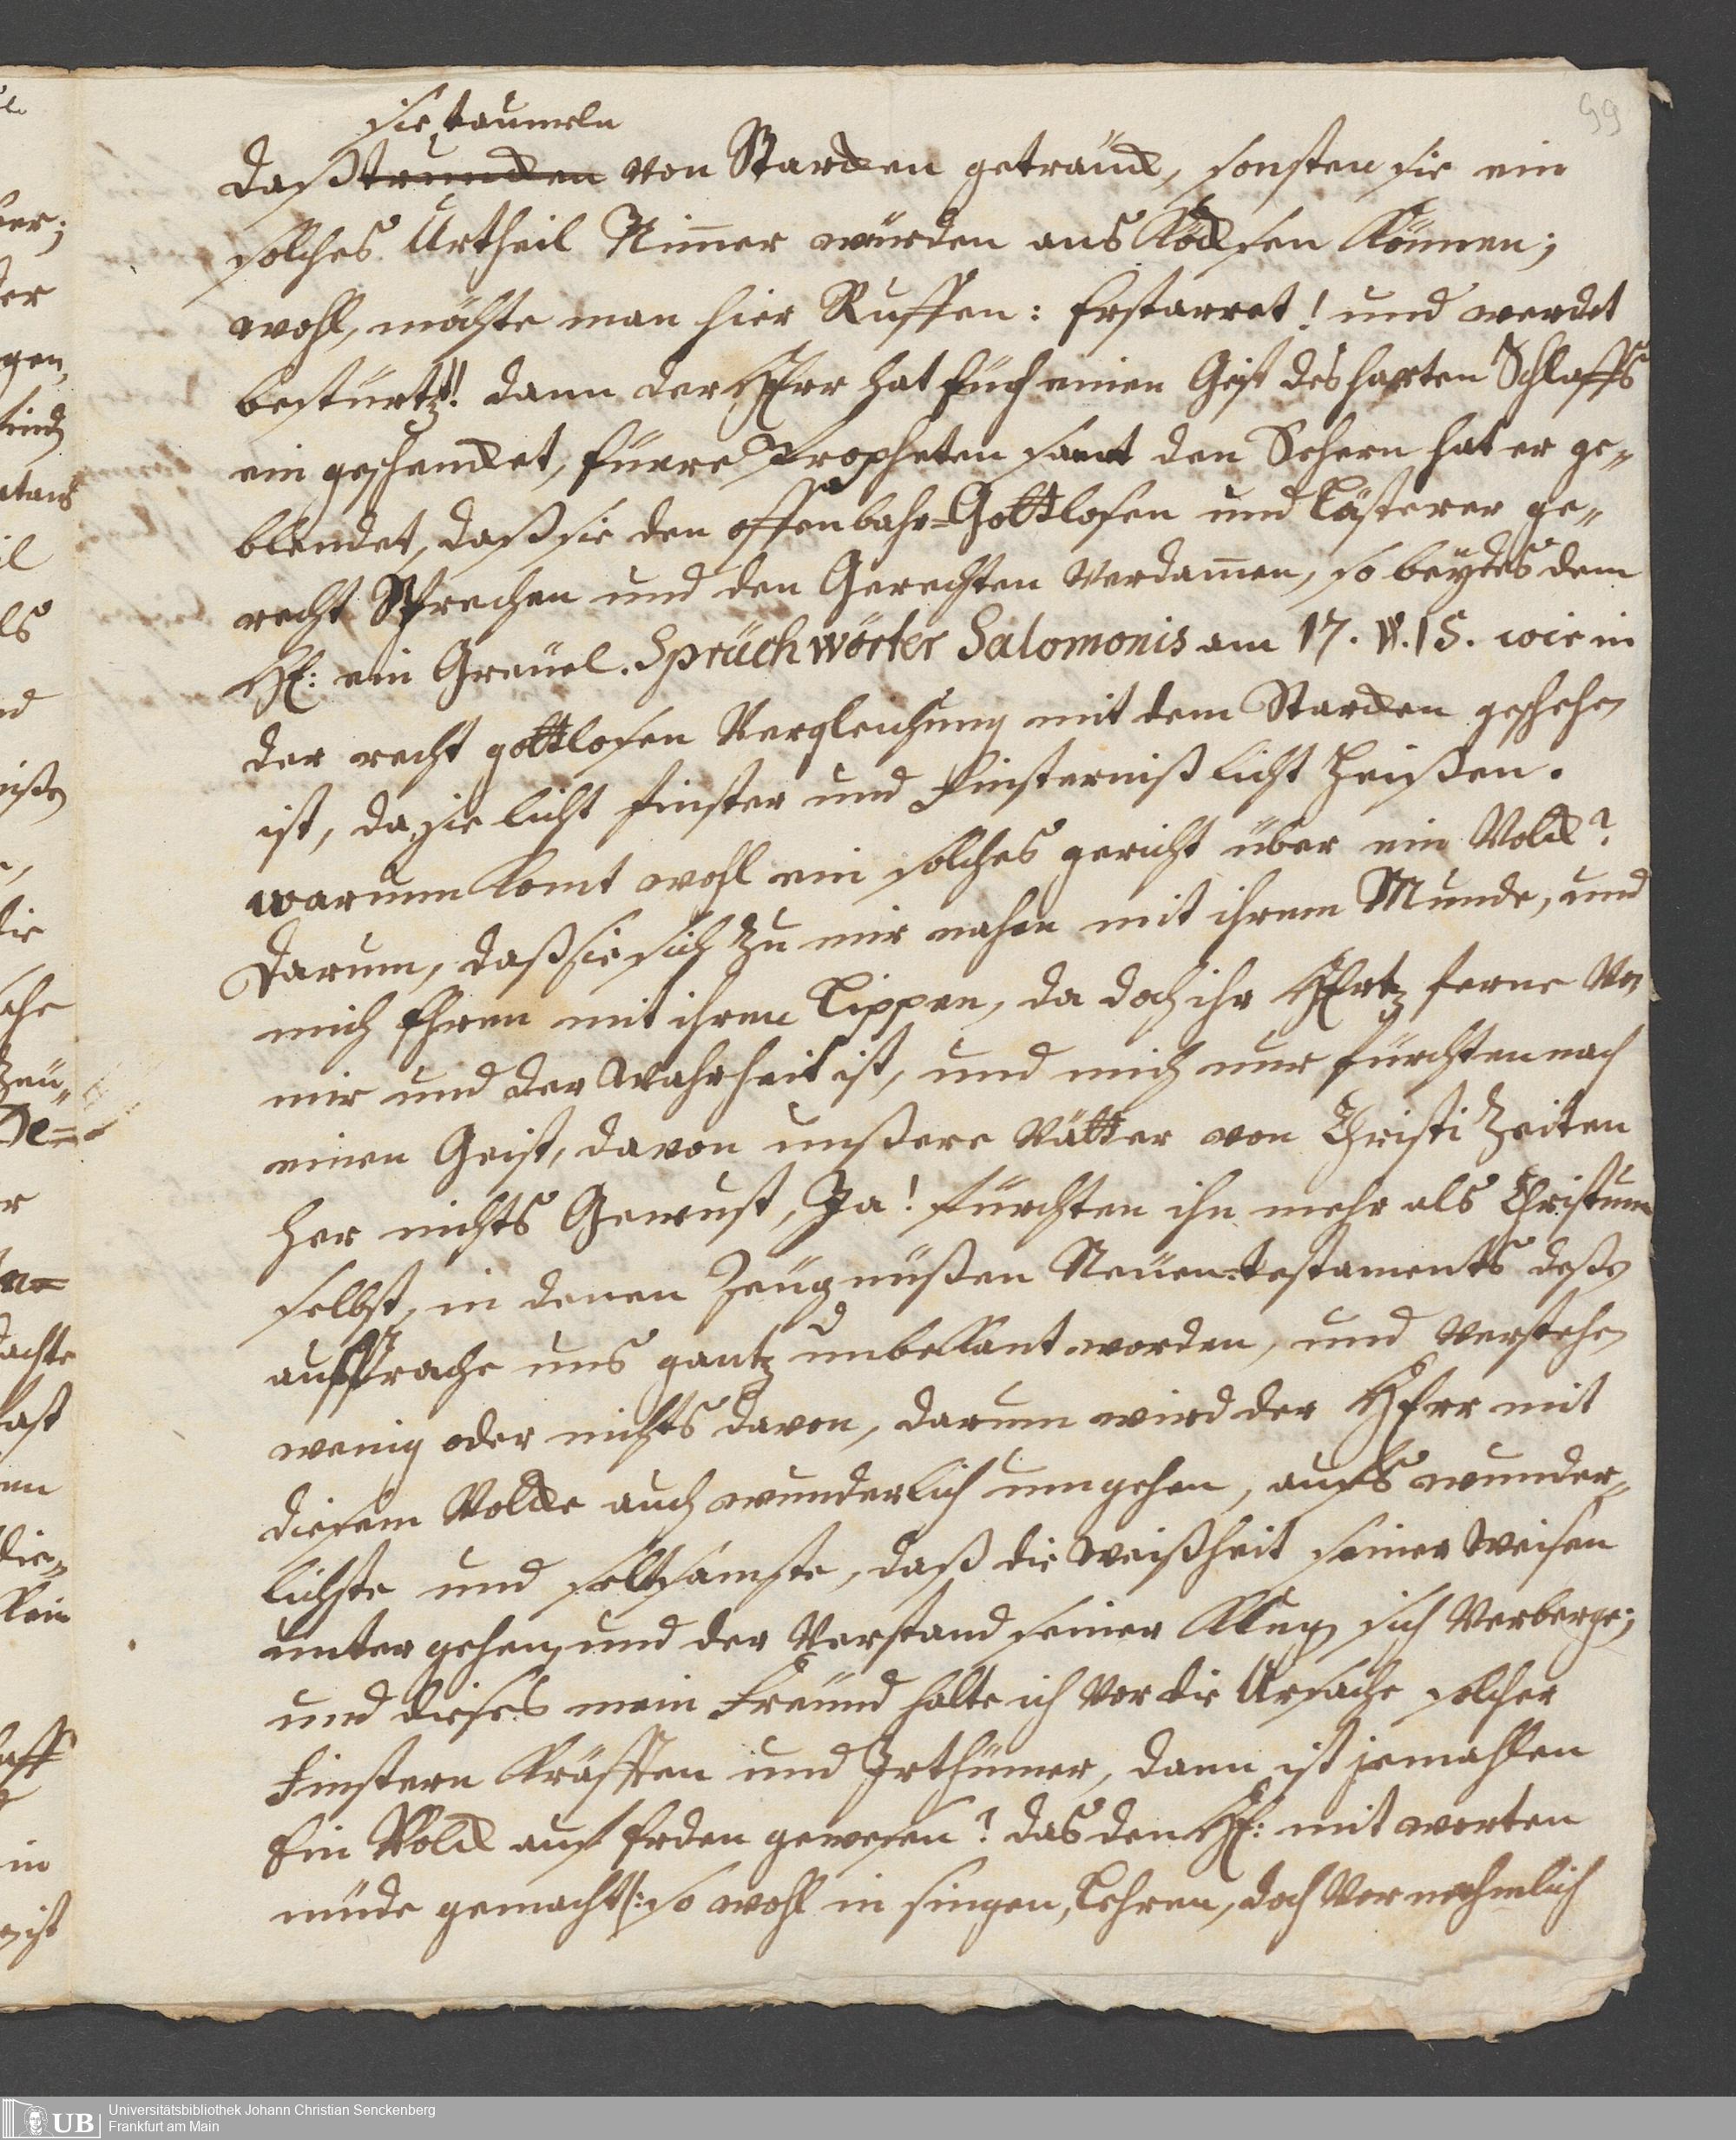 99
sie, taumeln
daß trunccken von Starcken geträncck, sonsten sie ein
solches Urtheil Nim̄er würden aus Köcksen Können;
wohl, möchte man hier Ruffen: Erstarret! und werdet
bestürtzt! dann der HErr hat Euch einen Geist des harten Schlaffs
ein geschencket, Euere Propheten samt den Sehern hat er ge„
blendet, daß sie den offenbahr=Gottlosen und Lästerer ge„
recht Sprechen und den Gerechten Verdam̄en, so beÿdes dem
HE: ein Greüel. Sprüchwörter Salomonis am 17. V. 15. wie in
der recht gottlosen Vergleichung mit dem Starcken geschehen
ist, da sie licht finster und Finsterniß licht heissen.
warumm Komt wohl ein solches gericht über ein Volck?
Darum, daß sie sich zu mir nahen mit ihrem Munde, und
mich Ehren mit ihren Lippen, da doch ihr HErtz ferne Von
mir und der Wahrheit ist, und mich nur fürchten nach
einen Geist, davon unßere Vätter von Christi Zeiten
her nichts Gewust, Ja! fürchten ihn mehr als Christum
selbst, in denen Zeügnüßen Neüen=testaments deßen
aussprache uns gantz unbekant worden, und verstehen
wenig oder nichts davon, darum wird der HErr mit
diesem Volcke auch wunderlich umgehen, aufs wunder„
lichste und seltzamste, daß die Weißheit seiner Weisen
unter gehen, und der Verstand seiner Klugen sich Verberge;
und dieses mein Freünd halte ich Vor die Ursache solcher
Finstern Kräfften und Irthümer, dann ist jemahlen
Ein Volck auf Erden gewesen? das den HE: mit worten
müde gemacht /: so wohl in singen, Lehren, doch Vornehmlich
UB
Universitätsbibliothek Johann Christian Senckenberg
Frankfurt am Main